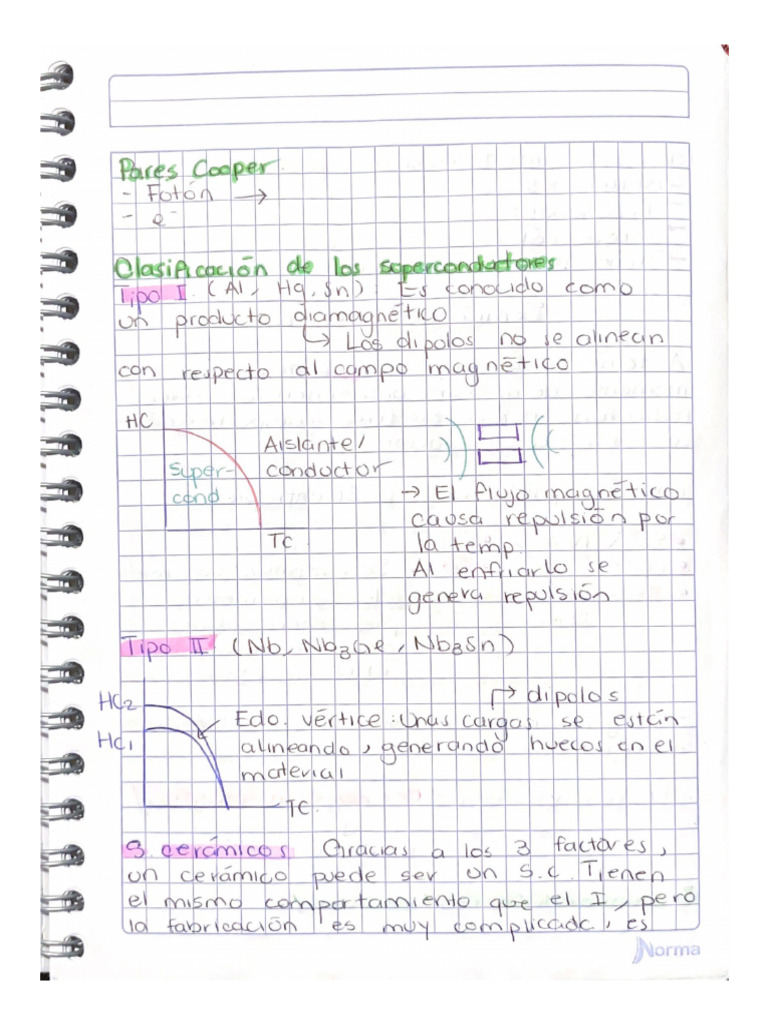 Pares Cooper
- Fotón →
- e⁻
Clasificación de los superconductores
Tipo I (Al, Hg, Sn) Es conocido como
un producto diamagnético
↳ Los dipolos no se alinean
con respecto al campo magnético
HC
Aislante/
conductor
Super-
cond
TC
→ El flujo magnético
causa repulsión por
la temp.
Al enfriarlo se
genera repulsión
Tipo II (Nb, Nb3Ge, Nb3Sn)
HC2
HC1
↱ dipolos
Edo. vértice: Unas cargas se están
alineando, generando huecos en el
material
TC
S. cerámicos Gracias a los 3 factores,
un cerámico puede ser un S.C. Tienen
el mismo comportamiento que el I, pero
la fabricación es muy complicada, es
Norma